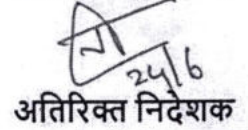 24/6
अतिरिक्त निदेशक